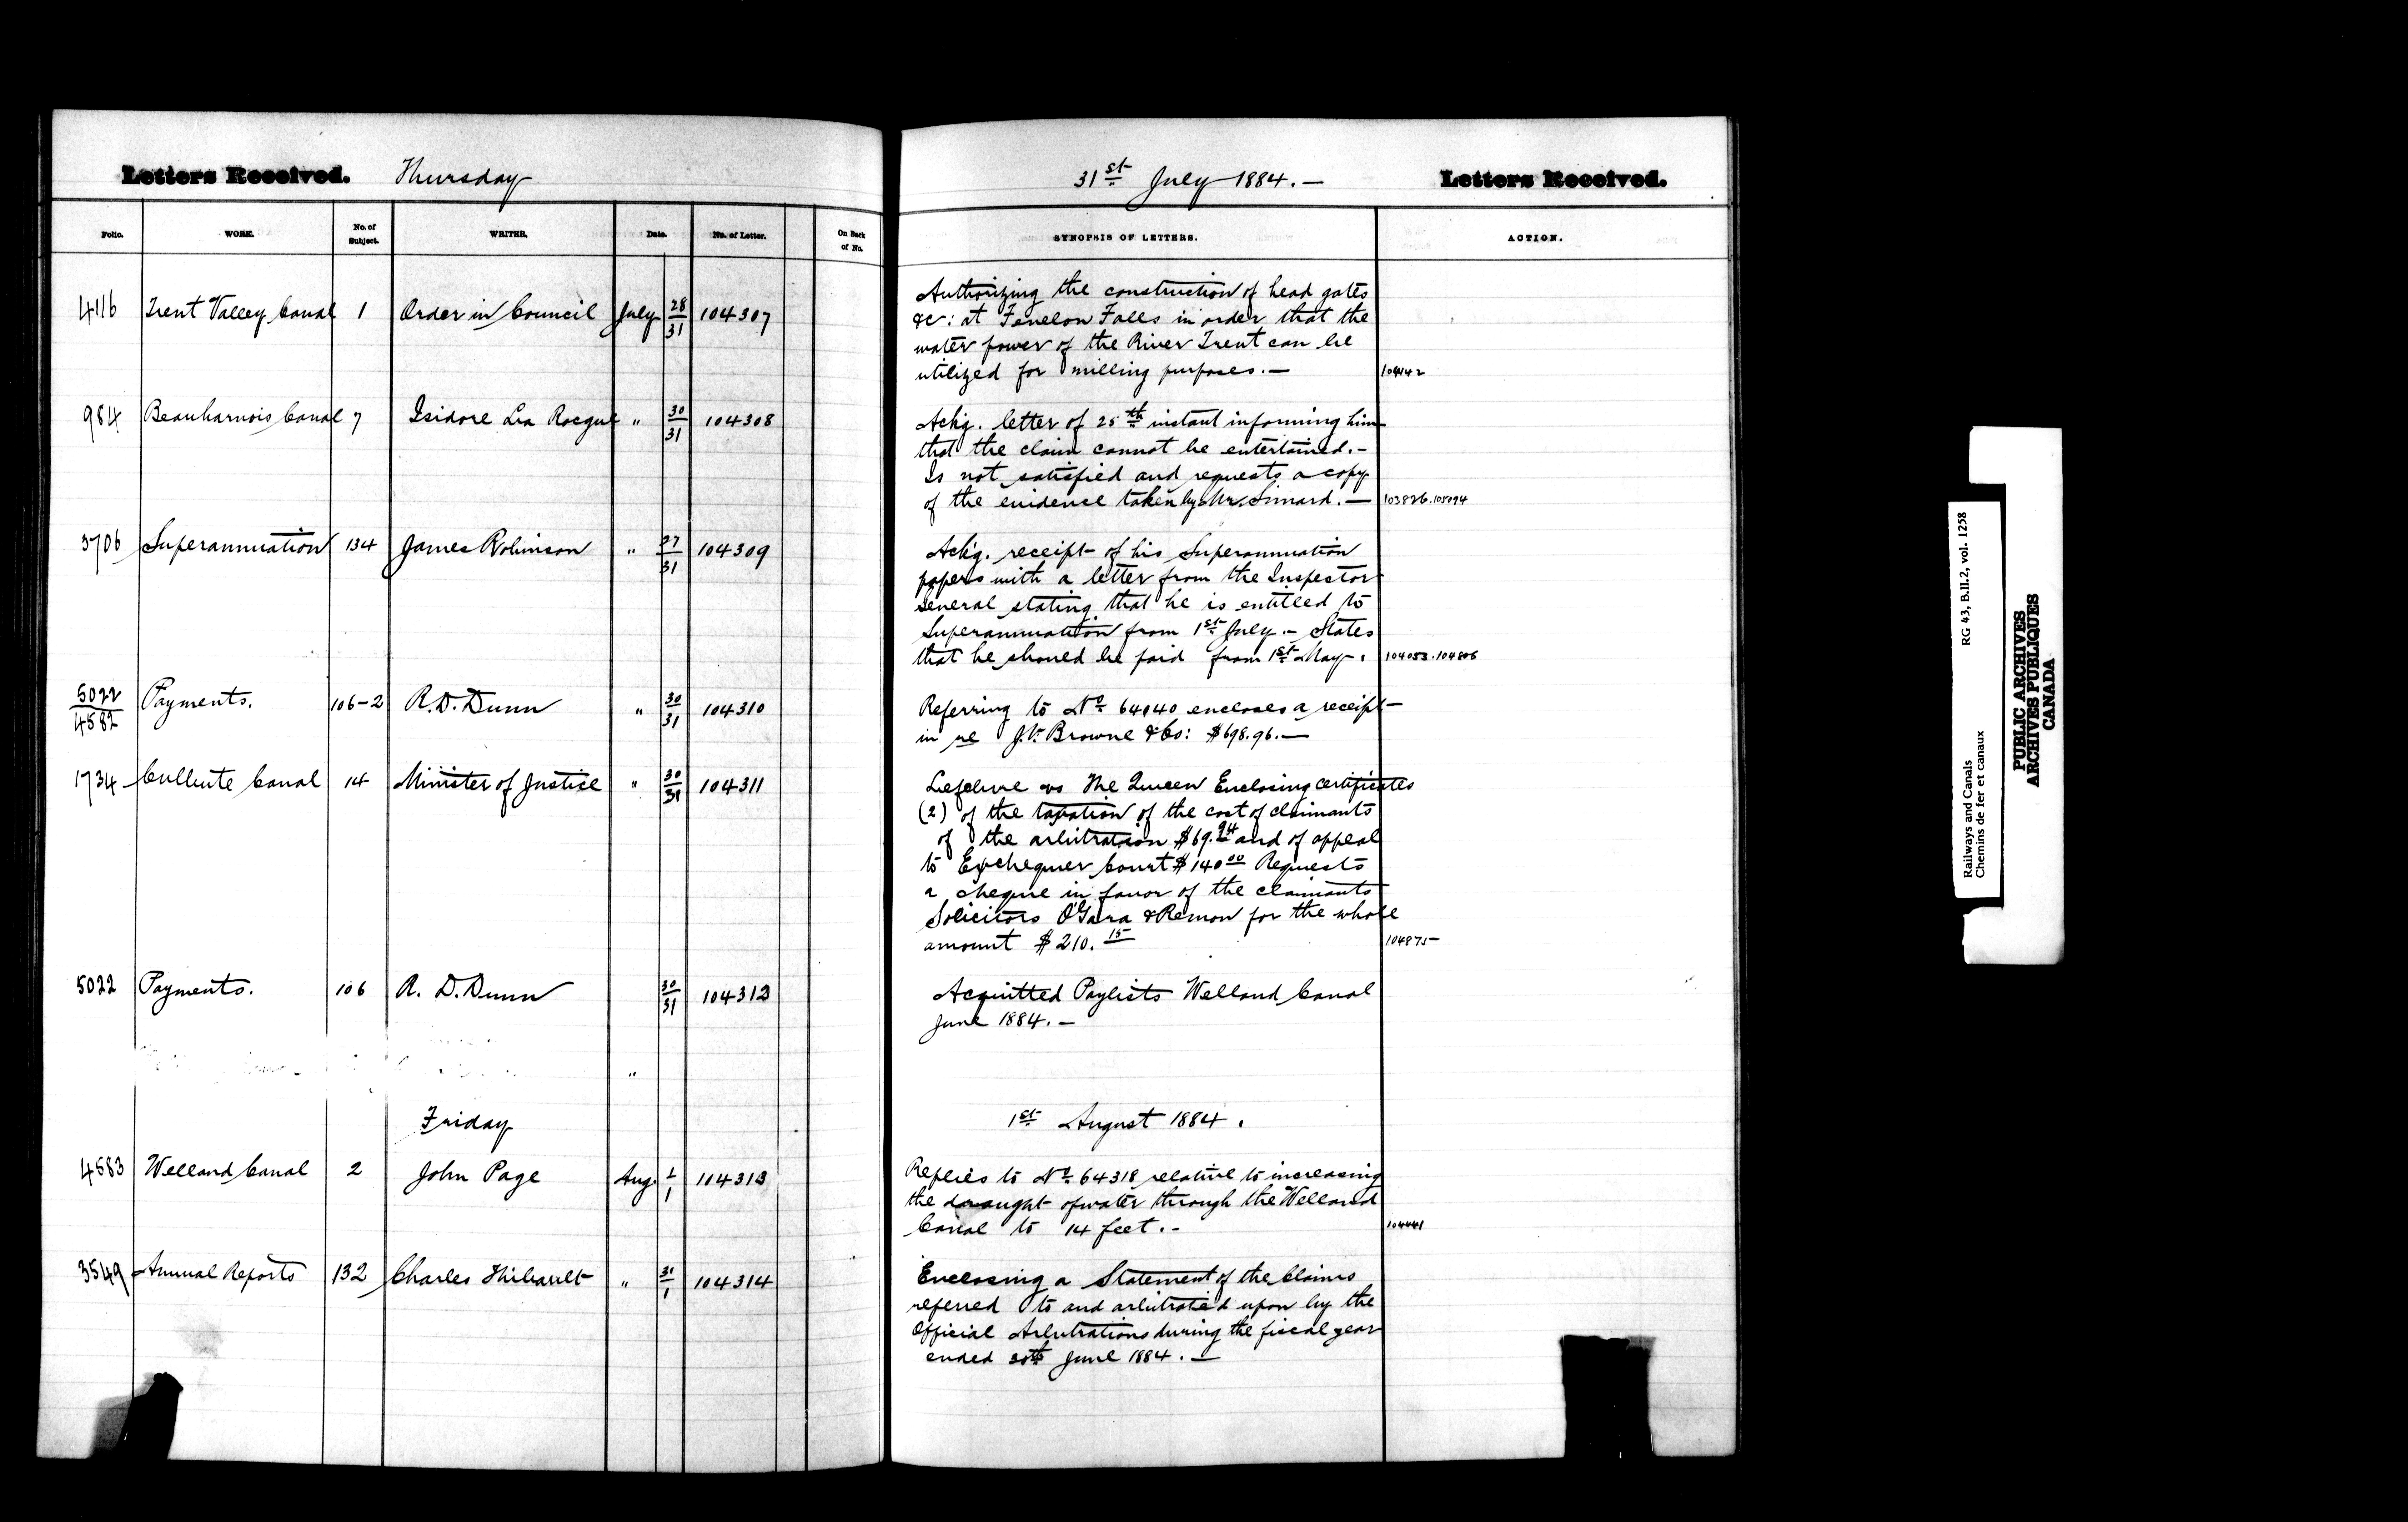 Letters Received. Thursday
31st July 1884. —
Letters Received.
Folio. WORK. No. of Subject. WRITER. Date. No. of Letter. On Back of No. SYNOPSIS OF LETTERS. ACTION.
4116 Trent Valley Canal 1 Order in Council July 28/31 104307
Authorizing the construction of head gates
&c: at Fenelon Falls in order that the
water power of the River Trent can be
utilized for milling purposes. — 104142
984 Beauharnois Canal 7 Isidore La Rocque " 30/31 104308
Ackg. letter of 25th instant informing him
that the claim cannot be entertained. -
Is not satisfied and requests a copy
of the evidence taken by Mr. Simard. — 103826.105094
3706 Superannuation 134 James Robinson " 27/31 104309
Ackg. receipt of his Superannuation
papers with a letter from the Inspector
General stating that he is entitled to
Superannuation from 1st July. - States
that he should be paid from 1st May. 104053.104806
5022/4582 Payments. 106-2 R. D. Dunn " 30/31 104310
Referring to No 64040 encloses a receipt
in re J. V. Browne & Co: $698.96. —
1734 Culbute Canal 14 Minister of Justice " 30/31 104311
Lefebvre vs The Queen Enclosing certificates
(2) of the taxation of the cost of claimants
of the arbitration $69.94 and of appeal
to Exchequer Court $140.00 Requests
a cheque in favor of the claimants
Solicitors O'Gara & Remon for the whole
amount $210.15 104875
5022 Payments. 106 R. D. Dunn 30/31 104312
Acquitted Paylists Welland Canal
June 1884. —
"
Friday
1st August 1884.
4583 Welland Canal 2 John Page Aug. 1/1 104313
Replies to No 64318 relative to increasing
the draught of water through the Welland
Canal to 14 feet. - 104441
3549 Annual Reports 132 Charles Thibault " 31/1 104314
Enclosing a Statement of the Claims
referred to and arbitrated upon by the
Official Arbitrations during the fiscal year
ended 30th June 1884. —
Railways and Canals RG 43, B.III.2, vol. 1258
Chemins de fer et canaux
PUBLIC ARCHIVES
ARCHIVES PUBLIQUES
CANADA